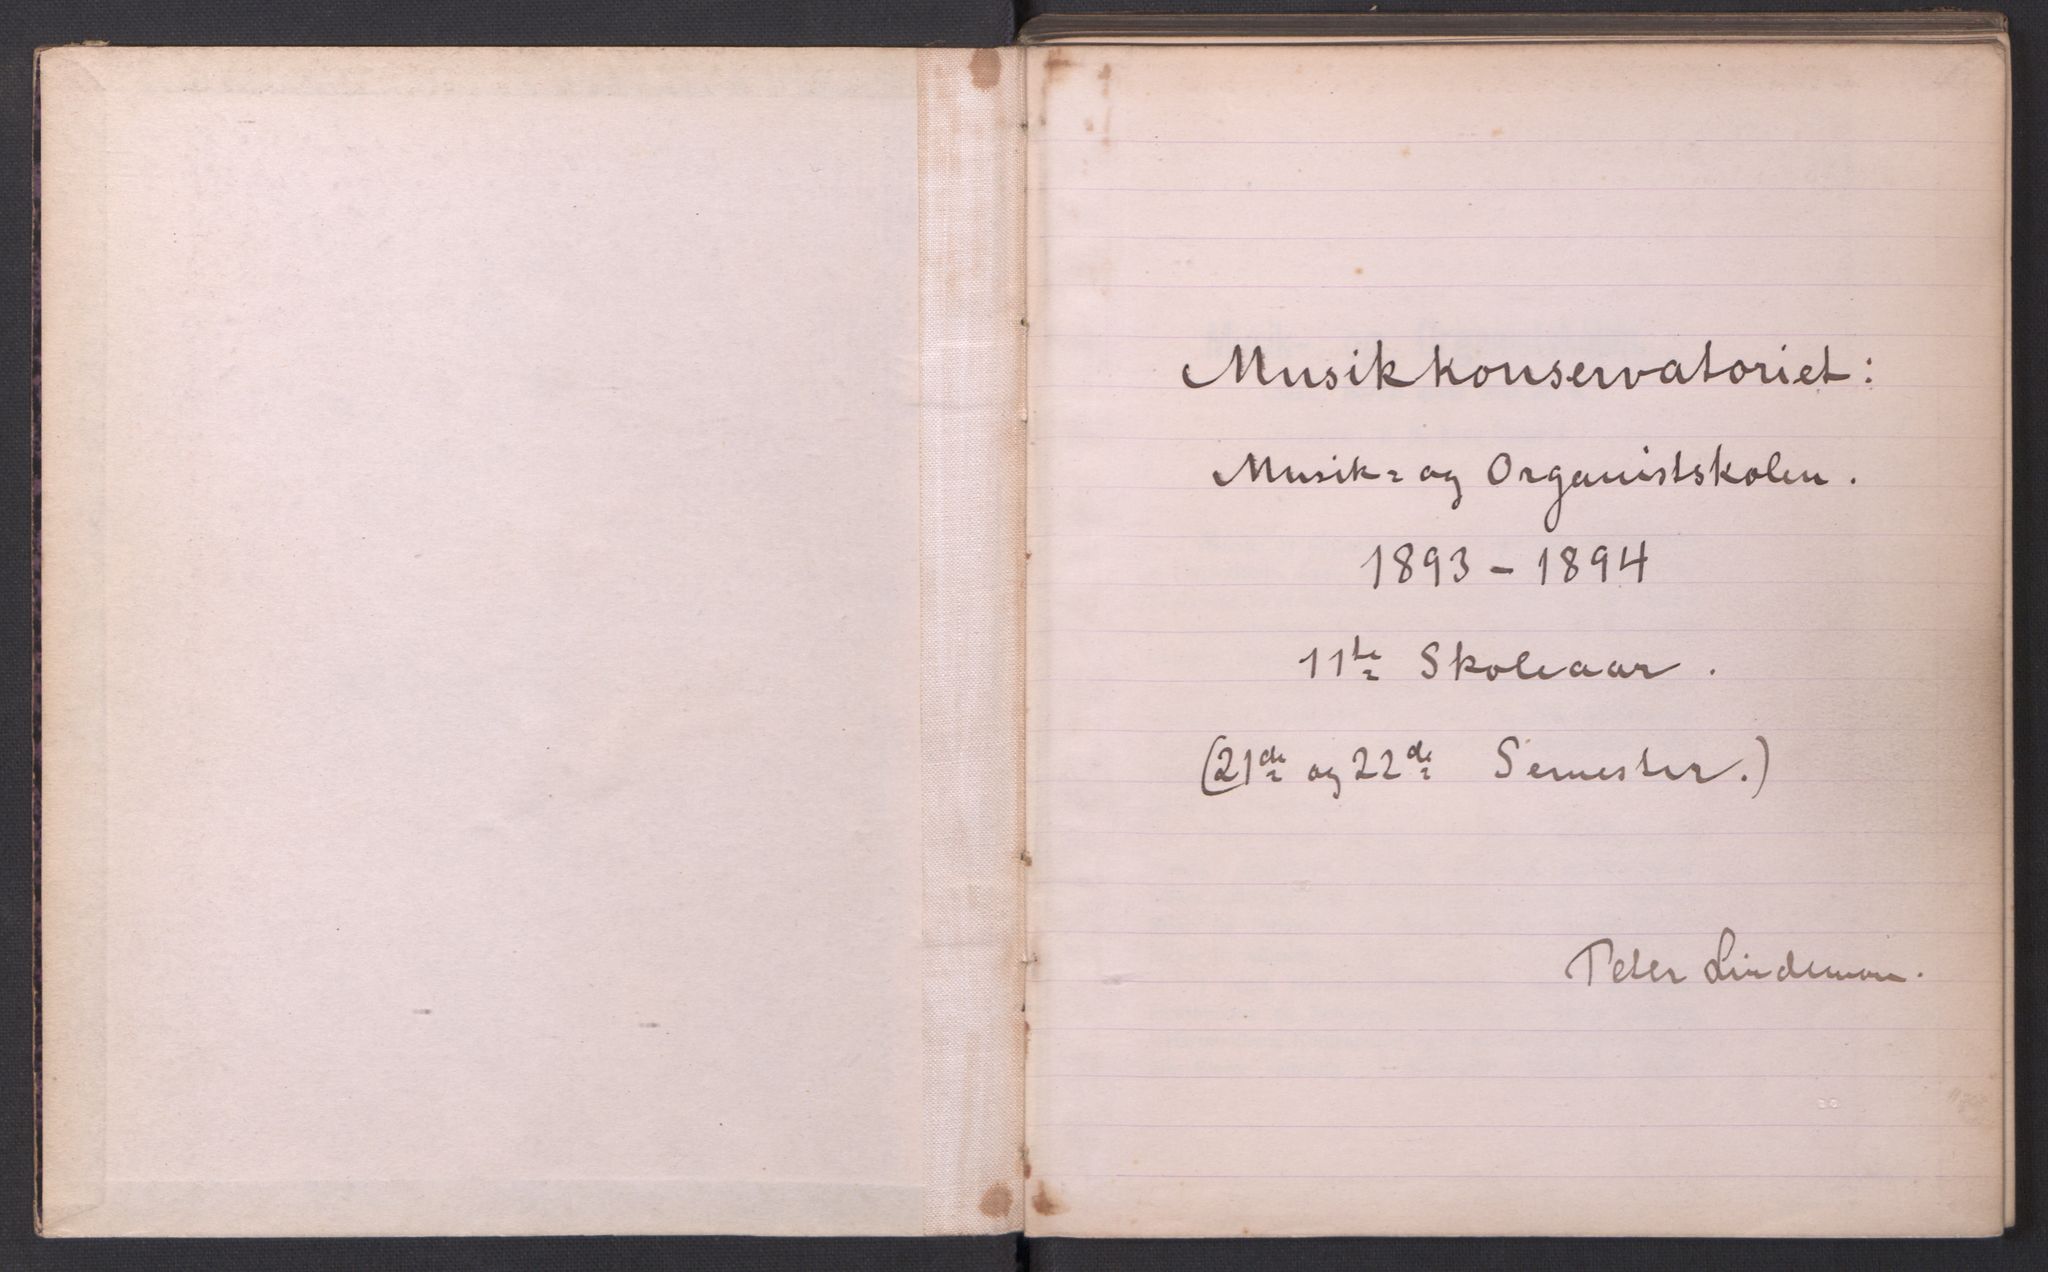 Musikkonservatoriet:
Musik= og Organistskolen.
1893 - 1894
11te Skoleaar.
(21de og 22de Semester.)
Peter Lindeman.